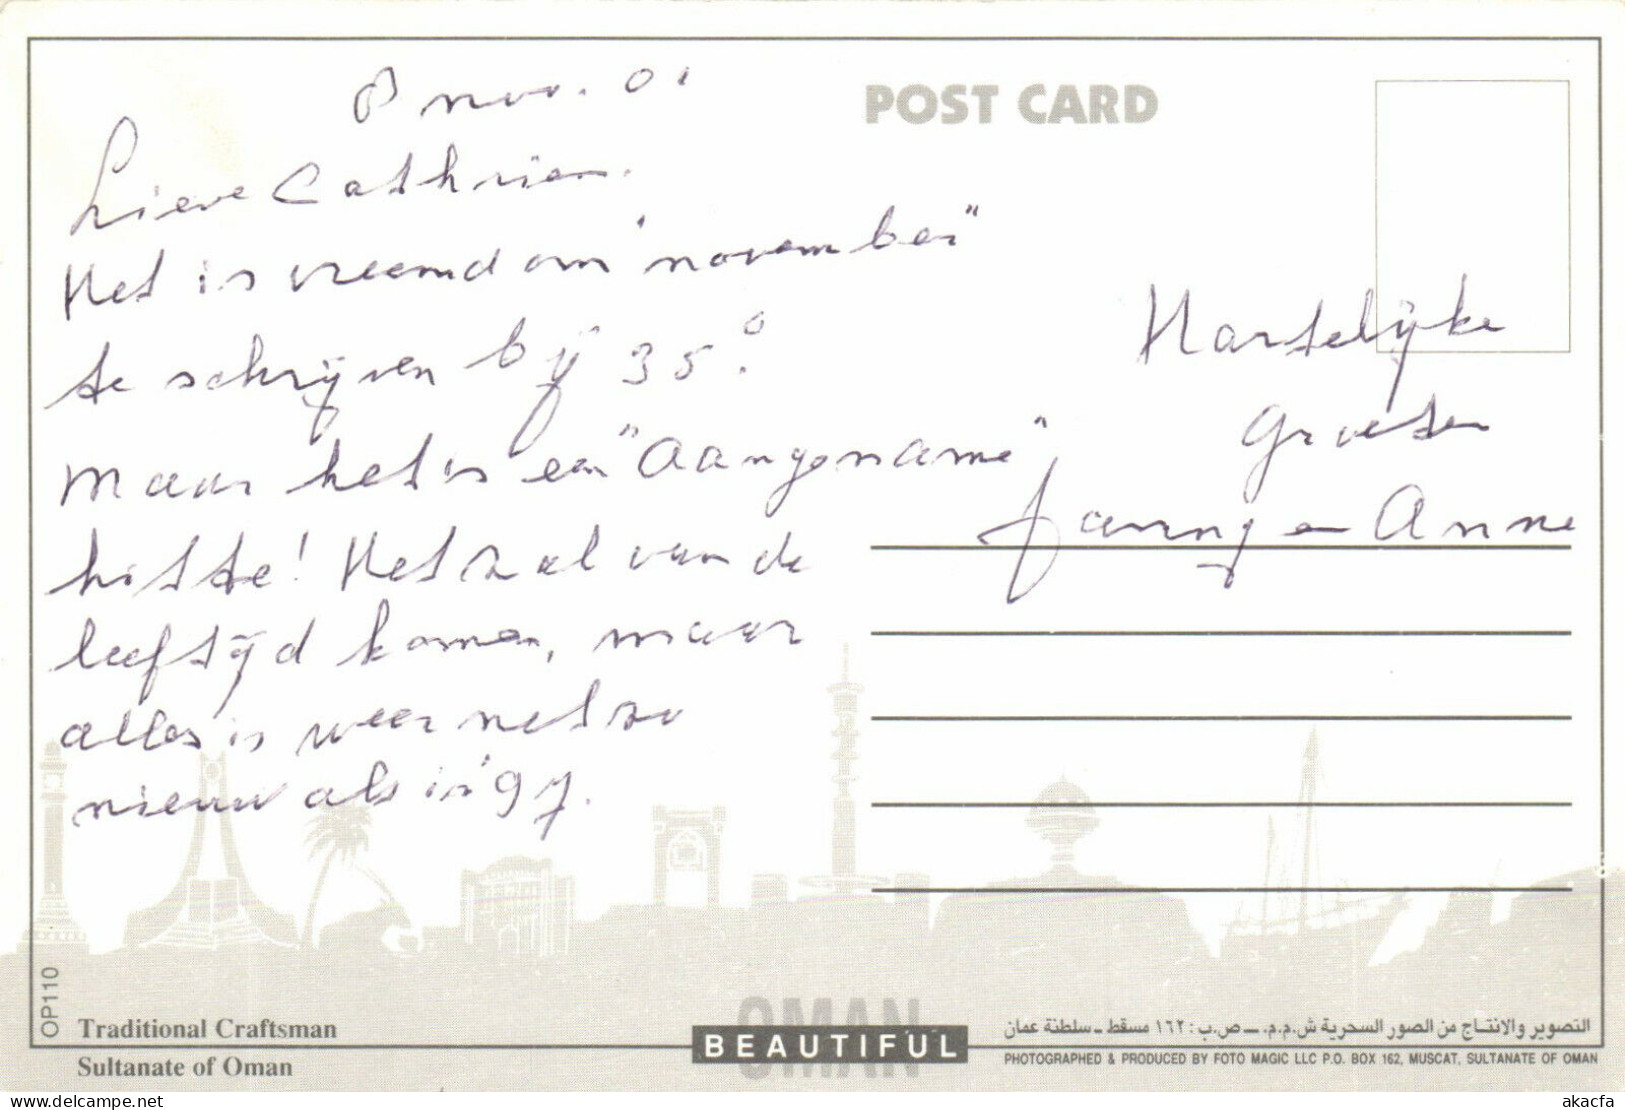 POST CARD
8 nov. 01
Lieve Cathrien.
Het is vreemd om "november"
te schrijven bij 35°.
Maar het is een "aangename"
hitte! Het zal van de
leeftijd komen, maar
alles is weer net zo
nieuw als in '97.
Hartelijke
Groeten
Janny en Anne
OP110
Traditional Craftsman
Sultanate of Oman
OMAN
BEAUTIFUL
التصوير والانتاج من الصور السحرية ش.م.م. ــ ص.ب: ١٦٢ مسقط ـ سلطنة عمان
PHOTOGRAPHED & PRODUCED BY FOTO MAGIC LLC P.O. BOX 162, MUSCAT, SULTANATE OF OMAN
delcampe.net
akacfa